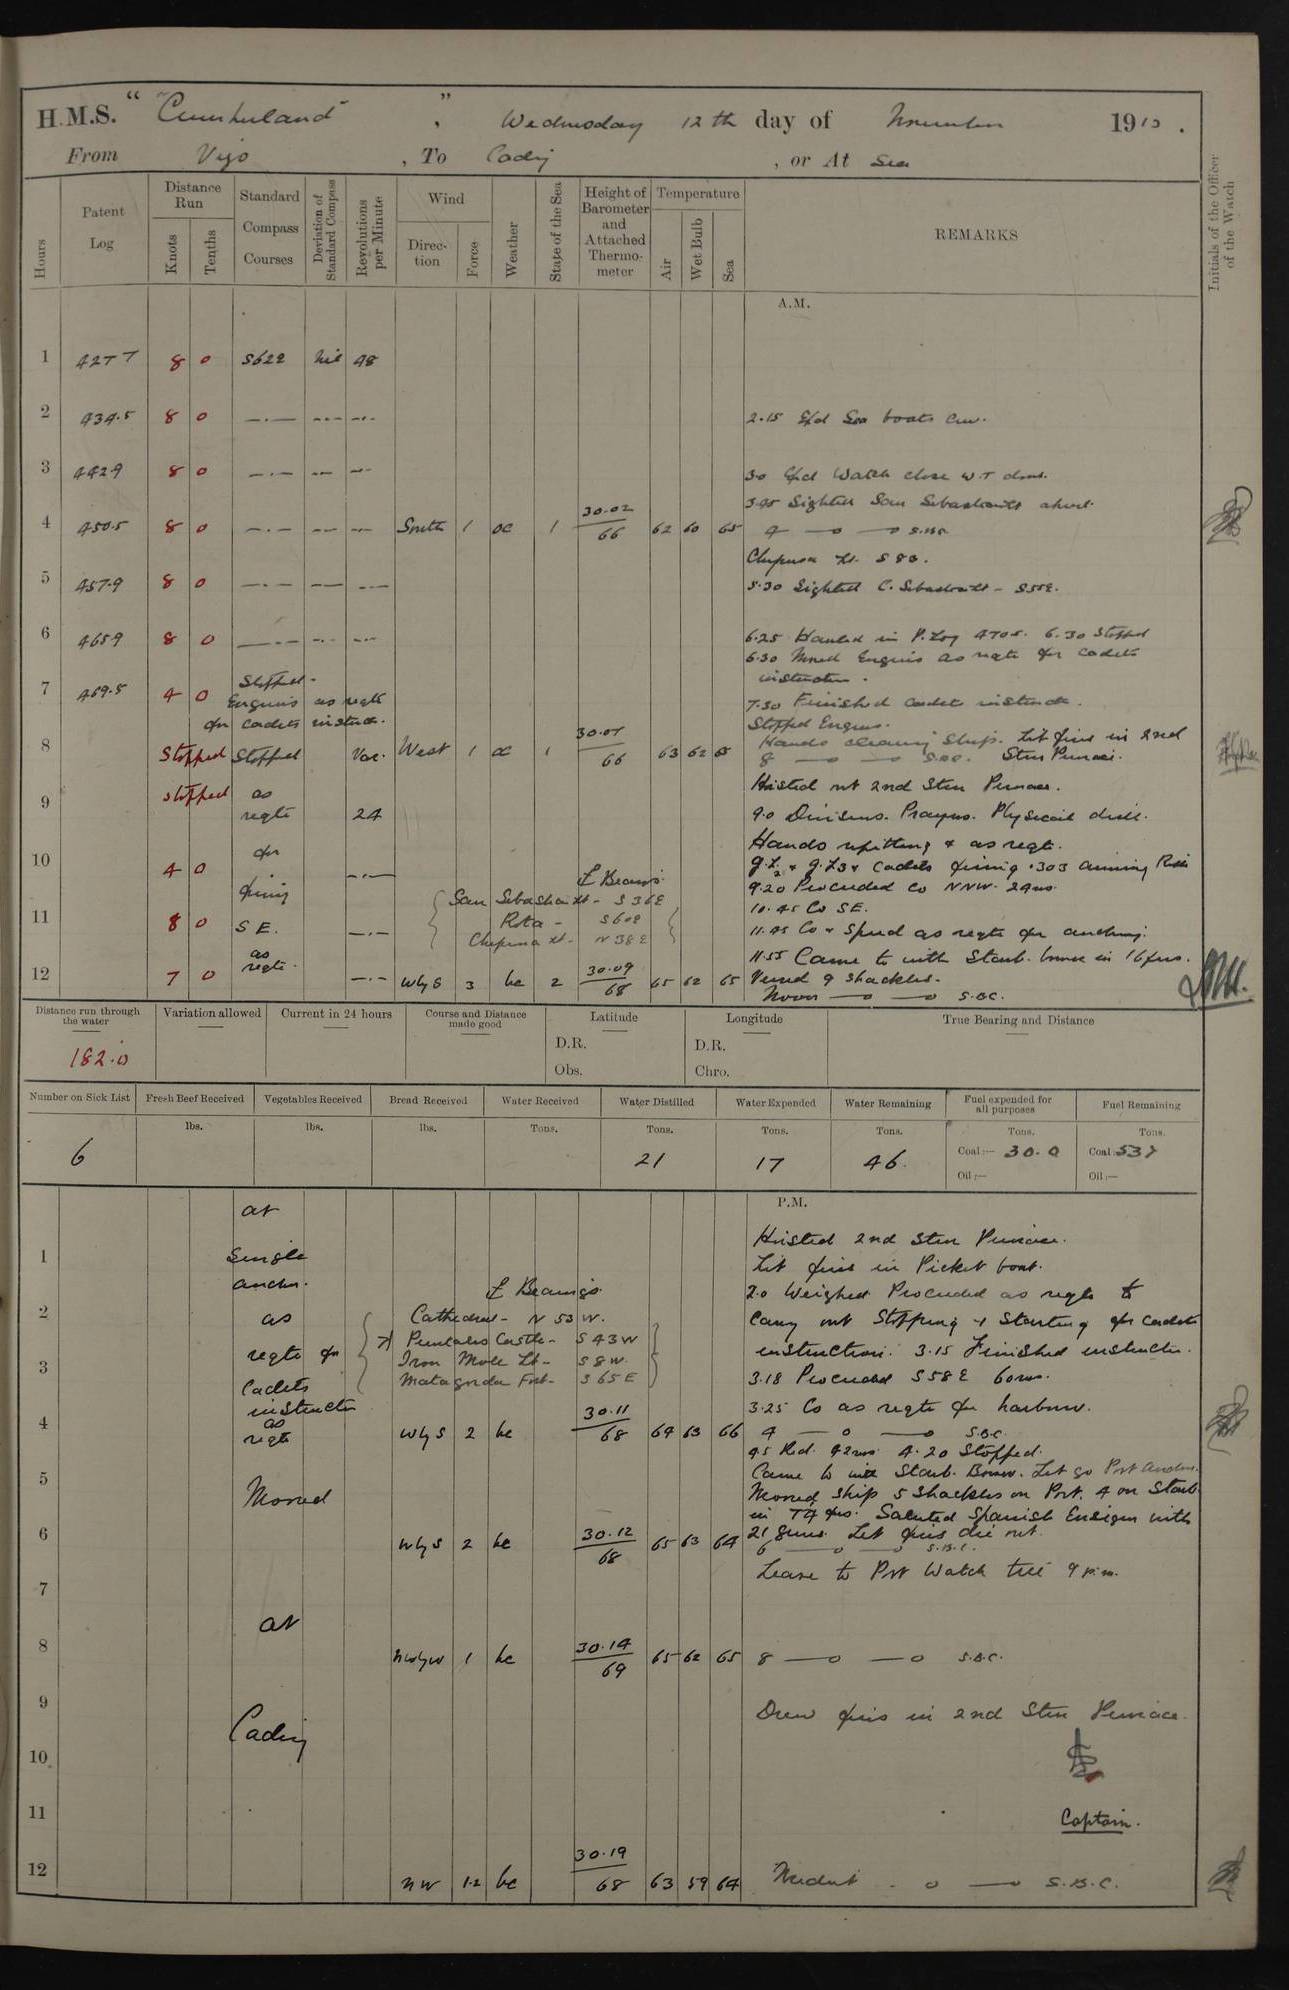 H.M.S. "Cumberland", Wednesday 12th day of November 1913.
From Vigo, To Cadiz, or At Sea
Hours
Patent Log
Distance Run
Knots
Tenths
Standard Compass Courses
Deviation of Standard Compass
Revolutions per Minute
Wind
Direction
Force
Weather
State of the Sea
Height of Barometer and Attached Thermometer
Temperature
Air
Wet Bulb
Sea
REMARKS
Initials of the Officer of the Watch
A.M.
1 427.7 8 0 S62E nil 48
2 434.5 8 0 —·— —·— —·— 2.15 Exd Sea boats crew.
3 442.9 8 0 —·— —·— —·— 3.0 Exd Watch close W.T doors.
3.45 Sighted San Sebastian Lt ahead.
4 450.5 8 0 —·— —·— —·— South 1 oc 1 30.02 66 62 60 65 4 —o —o S.B.C.
Chipiona Lt. S 83.
5 457.9 8 0 —·— —·— —·— 5.30 Sighted C. Sebastian Lt - S55E.
6 465.9 8 0 —·— —·— —·— 6.25 Hauled in P. Log 470.5. 6.30 Stopped
6.30 Moved Engines as reqte for cadets
instruction.
7 469.5 4 0 Stopped. Engines as reqte for cadets instruct.
7.30 Finished cadets instruct.
Stopped Engines.
Hands cleaning Ship. Lit fires in 2nd
8 Stopped Stopped Var. West 1 oc 1 30.05 66 63 62 65 8 —o —o S.B.C. Stm Pinnace.
9 stopped as reqte 24
Hoisted out 2nd Stm Pinnace.
9.0 Divisions. Prayers. Physical drill.
Hands refitting & as reqte.
10 4 0 for firing —·—
G.L2 & G.L3 & Cadets firing .303 aiming Rifle
9.20 Proceeded Co NNW. 24 rvs.
Bearings
San Sebastian Lt - S 36 E
11 8 0 S E. —·— Rota - S60E
Chipiona Lt - N 38 E
10.45 Co SE.
11.45 Co & Speed as reqte for anchorg.
11.55 Came to with Starb. bower in 16 fms.
12 7 0 as reqte. —·— W by S 3 bc 2 30.09 68 65 62 65 Veered 9 shackles.
Noon —o —o S.B.C.
Distance run through the water
Variation allowed
Current in 24 hours
Course and Distance made good
Latitude
Longitude
True Bearing and Distance
182.0
D.R.
Obs.
D.R.
Chro.
Number on Sick List
Fresh Beef Received
Vegetables Received
Bread Received
Water Received
Water Distilled
Water Expended
Water Remaining
Fuel expended for all purposes
Fuel Remaining
lbs. lbs. lbs. Tons. Tons. Tons. Tons. Tons. Tons.
6 21 17 46. Coal:— 30.0 Coal: 537
Oil:— Oil:—
P.M.
at
1 Single anchor.
Hoisted 2nd Stm Pinnace.
Lit fires in Picket boat.
Bearings.
2.0 Weighed Proceeded as reqte to
2 as Cathedral - N 53 W. carry out Stopping & Starting for cadets
Puntales Castle - S 43 W
reqte for Iron Mole Lt - S 8 W. instruction. 3.15 Finished instructn.
3 Cadets Matagorda Fort - S 65 E 3.18 Proceeded S58E 60 rvs.
instructn
as 3.25 Co as reqte for harbour.
4 reqte W by S 2 bc 30.11 68 64 63 66 4 —o —o S.B.C.
4.5 Red. 42 rvs. 4.20 Stopped.
Came to with Starb. Bower. Let go Port anchor.
5 Moored Moored Ship 5 Shackles on Port. 4 on Starb
in 7 1/4 fms. Saluted Spanish Ensign with
21 Guns. Let fires die out.
6 W by S 2 bc 30.12 68 65 63 64 6 —o —o S.B.C.
Leave to Port Watch till 9 p.m.
7
at
8 NW by W 1 bc 30.14 69 65 62 65 8 —o —o S.B.C.
9 Drew fires in 2nd Stm Pinnace.
Cadiz
10
11 Captain.
12 NW 1.2 bc 30.19 68 63 59 64 Midnt. o —o S.B.C.